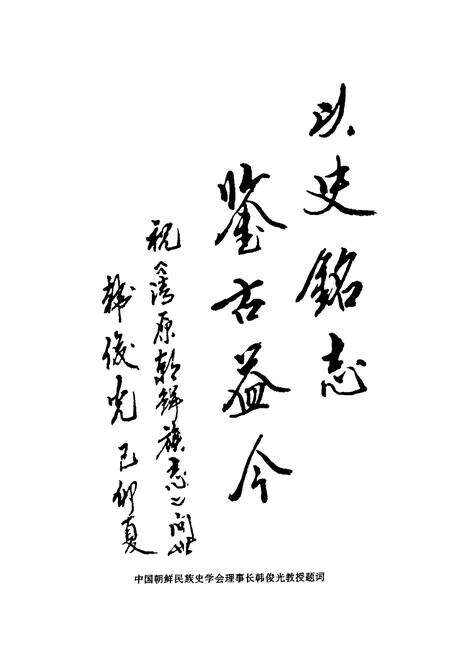 以史銘志
鉴古益今
祝《清原朝鲜族志》问世
韩俊光 己卯夏
中国朝鲜民族史学会理事长韩俊光教授题词